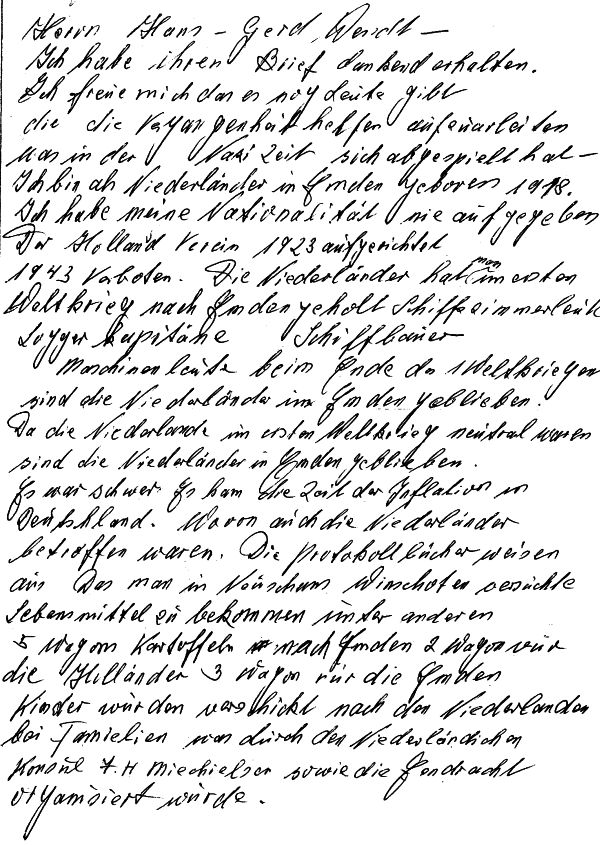 Herrn Hans - Gerd Wendt -
Ich habe ihren Brief dankend erhalten.
Ich freue mich das es noy Leute gibt
die die Vergangenheit helfen aufzuarbeiten
was in der Nazi Zeit sich abgespielt hat -
Ich bin als Niederländer in Emden geboren 1918.
Ich habe meine Nationalität nie aufgegeben
Der Holland Verein 1923 aufgerichtet
1943 Verboten. Die Niederländer hat man im ersten
Weltkrieg nach Emden geholt Schiffszimmerleute
Logger Kapitäne Schiffbauer
Maschinenleute beim Ende des 1 Weltkrieges
sind die Niederländer in Emden geblieben.
Da die Niederlande im ersten Weltkrieg neutral waren
sind die Niederländer in Emden geblieben.
Es war schwer. Es kam die Zeit der Inflation in
Deutshland. Wovon auch die Niederländer
betroffen waren. Die Protokollbücher weisen
aus Das man in Neuschans Winschoten versuchte
Lebensmittel zu bekommen unter anderen
5 Wagons Kartoffeln nach Emden 2 Wagon vür
die Holländer 3 Wagon vür die Emden
Kinder wurden verschickt nach den Niederlanden
bei Familien was durch den Niederländichen
Konsul F. H Miechielsen sowie die Eendracht
organisiert wurde.